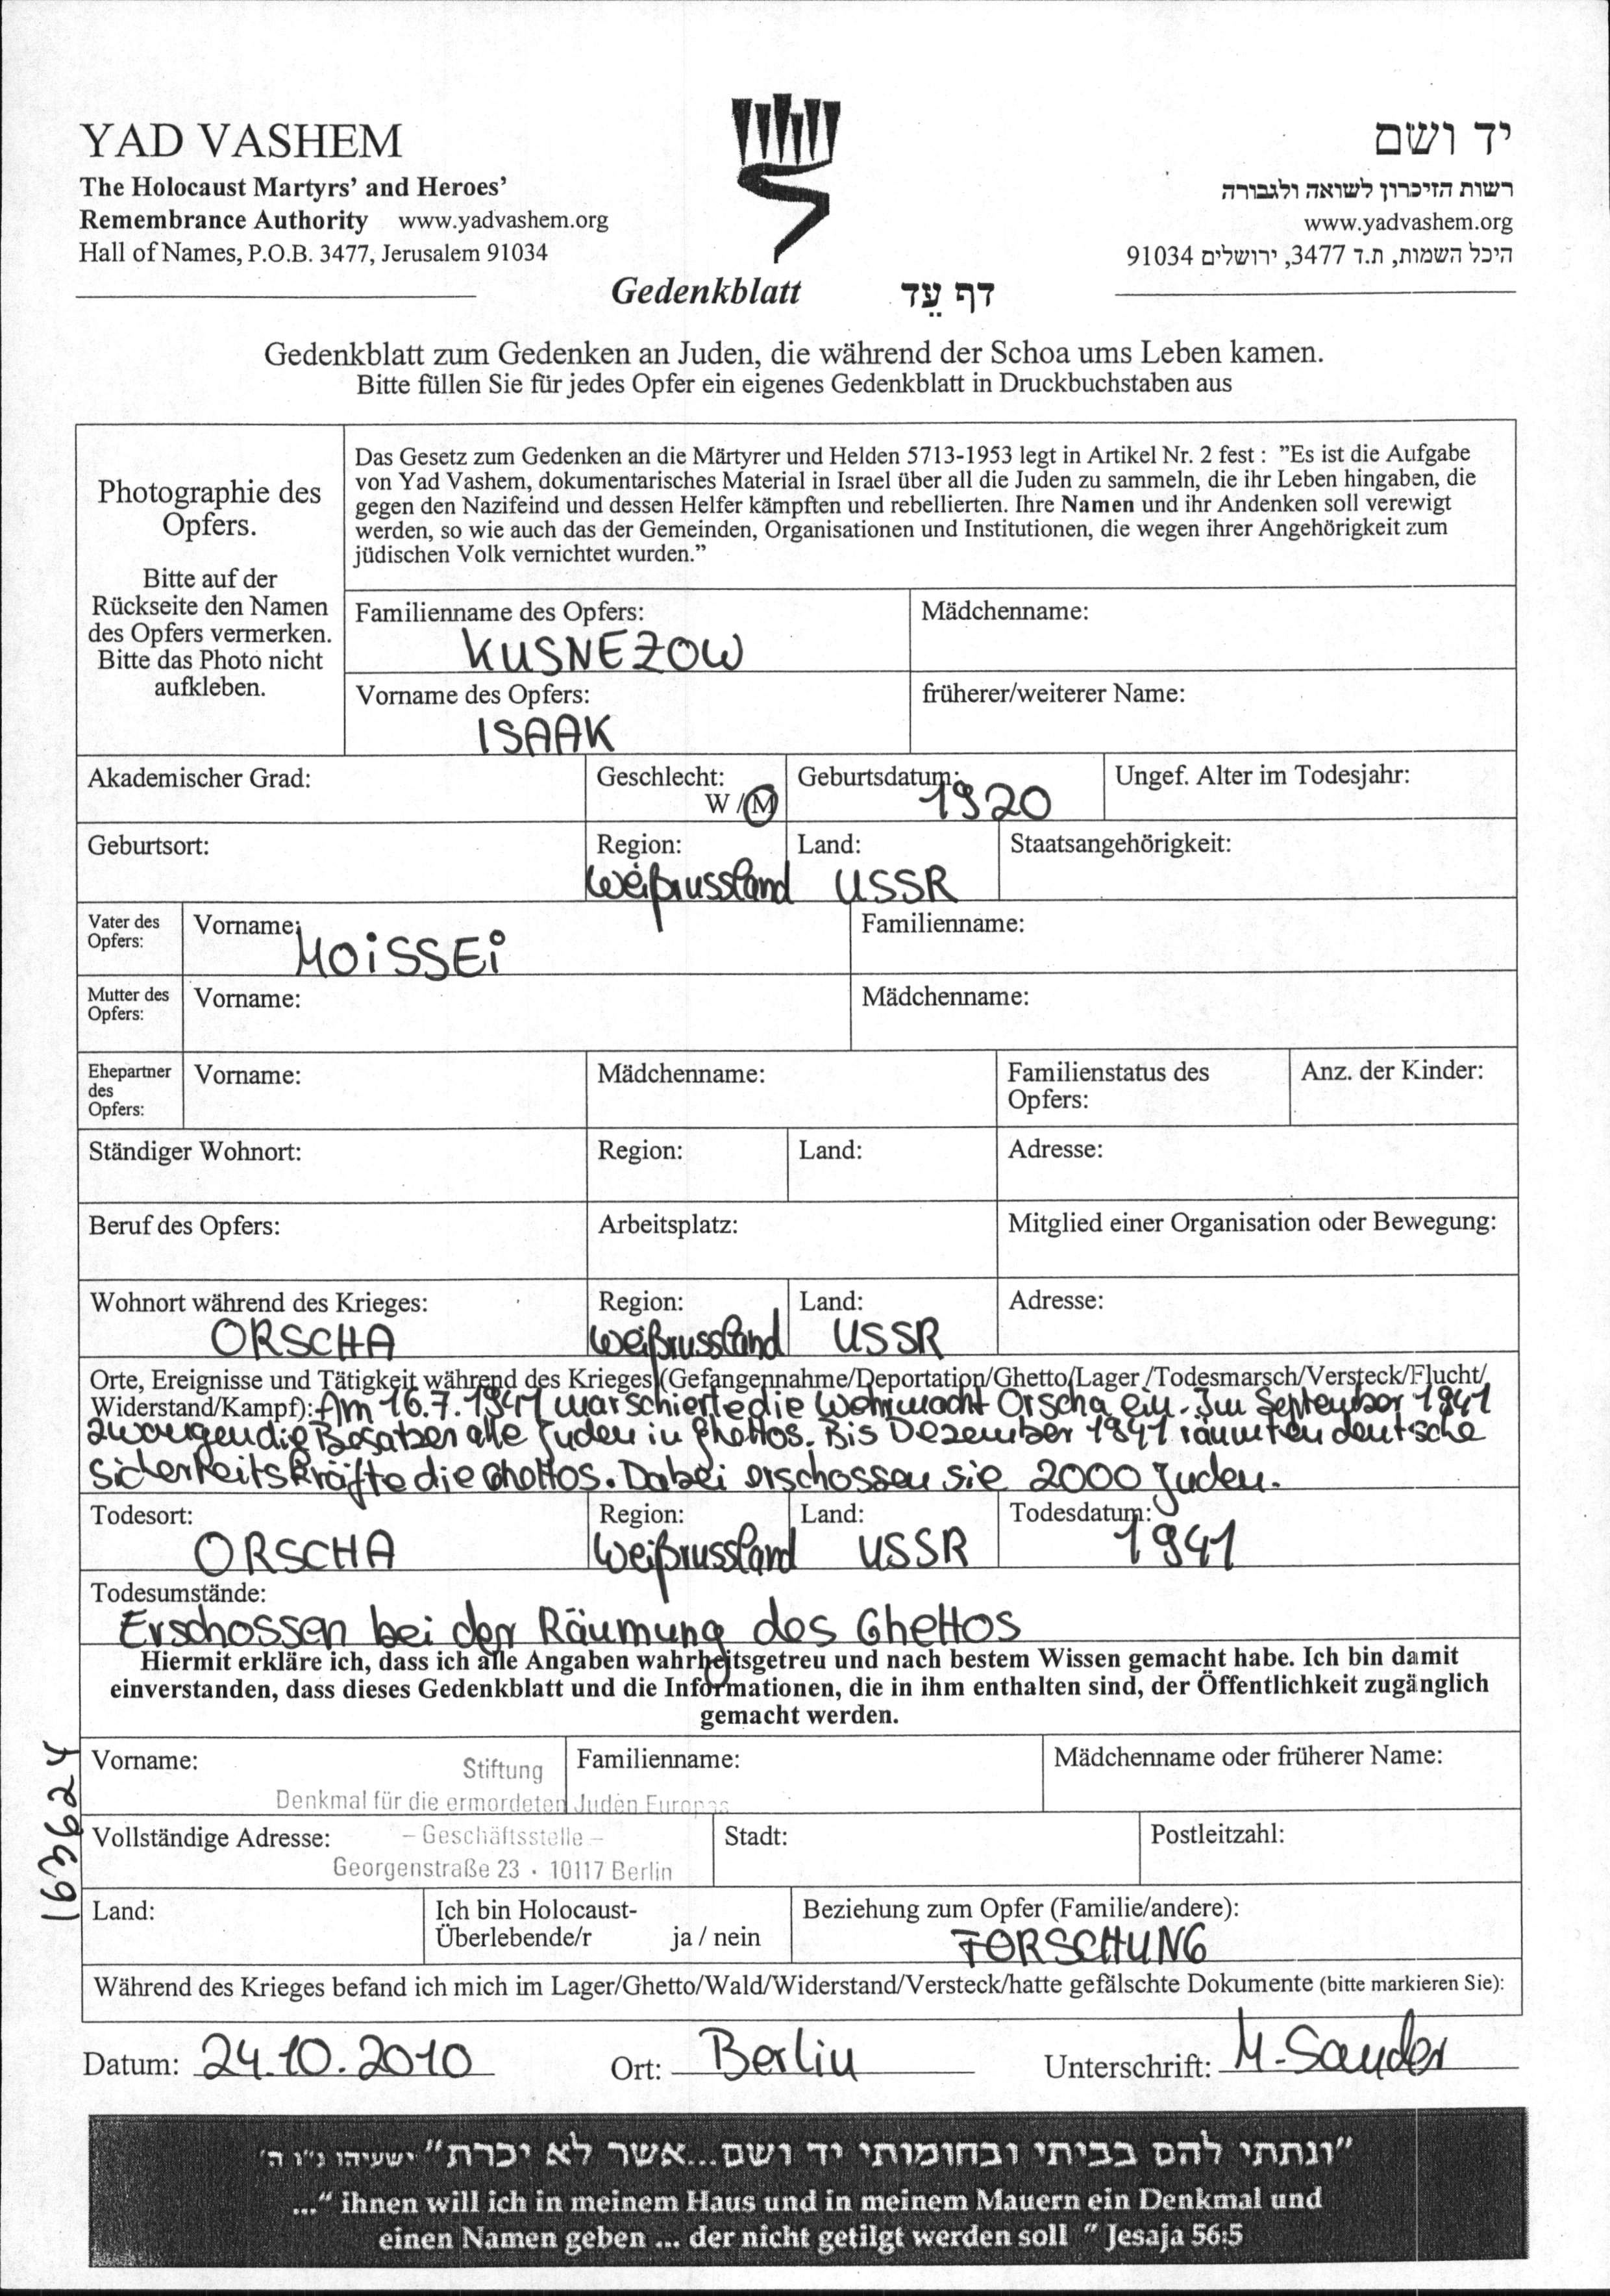 YAD VASHEM
The Holocaust Martyrs' and Heroes'
Remembrance Authority www.yadvashem.org
Hall of Names, P.O.B. 3477, Jerusalem 91034
יד ושם
רשות הזיכרון לשואה ולגבורה
www.yadvashem.org
היכל השמות, ת.ד 3477, ירושלים 91034
Gedenkblatt דף עֵד
Gedenkblatt zum Gedenken an Juden, die während der Schoa ums Leben kamen.
Bitte füllen Sie für jedes Opfer ein eigenes Gedenkblatt in Druckbuchstaben aus
Photographie des
Opfers.
Bitte auf der
Rückseite den Namen
des Opfers vermerken.
Bitte das Photo nicht
aufkleben.
Das Gesetz zum Gedenken an die Märtyrer und Helden 5713-1953 legt in Artikel Nr. 2 fest : "Es ist die Aufgabe
von Yad Vashem, dokumentarisches Material in Israel über all die Juden zu sammeln, die ihr Leben hingaben, die
gegen den Nazifeind und dessen Helfer kämpften und rebellierten. Ihre Namen und ihr Andenken soll verewigt
werden, so wie auch das der Gemeinden, Organisationen und Institutionen, die wegen ihrer Angehörigkeit zum
jüdischen Volk vernichtet wurden."
Familienname des Opfers: Mädchenname:
KUSNEZOW
Vorname des Opfers: früherer/weiterer Name:
ISAAK
Akademischer Grad: Geschlecht: Geburtsdatum: Ungef. Alter im Todesjahr:
W / M 1920
Geburtsort: Region: Land: Staatsangehörigkeit:
Weißrussland USSR
Vater des
Opfers:
Vorname: Familienname:
MOiSSEi
Mutter des
Opfers:
Vorname: Mädchenname:
Ehepartner
des
Opfers:
Vorname: Mädchenname: Familienstatus des
Opfers:
Anz. der Kinder:
Ständiger Wohnort: Region: Land: Adresse:
Beruf des Opfers: Arbeitsplatz: Mitglied einer Organisation oder Bewegung:
Wohnort während des Krieges: Region: Land: Adresse:
ORSCHA Weißrussland USSR
Orte, Ereignisse und Tätigkeit während des Krieges (Gefangennahme/Deportation/Ghetto/Lager /Todesmarsch/Versteck/Flucht/
Widerstand/Kampf): Am 16.7.1941 marschierte die Wehrmacht Orscha ein. Im September 1941
zwangen die Besatzer alle Juden in Ghettos. Bis Dezember 1941 räumten deutsche
Sicherheitskräfte die Ghettos. Dabei erschossen sie 2000 Juden.
Todesort: Region: Land: Todesdatum:
ORSCHA Weißrussland USSR 1941
Todesumstände:
Erschossen bei der Räumung des Ghettos
Hiermit erkläre ich, dass ich alle Angaben wahrheitsgetreu und nach bestem Wissen gemacht habe. Ich bin damit
einverstanden, dass dieses Gedenkblatt und die Informationen, die in ihm enthalten sind, der Öffentlichkeit zugänglich
gemacht werden.
163624
Vorname: Familienname: Mädchenname oder früherer Name:
Stiftung
Denkmal für die ermordeten Juden Europas
Vollständige Adresse: – Geschäftsstelle – Stadt: Postleitzahl:
Georgenstraße 23 · 10117 Berlin
Land: Ich bin Holocaust-
Überlebende/r ja / nein
Beziehung zum Opfer (Familie/andere):
FORSCHUNG
Während des Krieges befand ich mich im Lager/Ghetto/Wald/Widerstand/Versteck/hatte gefälschte Dokumente (bitte markieren Sie):
Datum: 24.10.2010 Ort: Berlin Unterschrift: M. Sander
"ונתתי להם בביתי ובחומותי יד ושם...אשר לא יכרת" ישעיהו נ"ו ה'
..." ihnen will ich in meinem Haus und in meinem Mauern ein Denkmal und
einen Namen geben ... der nicht getilgt werden soll " Jesaja 56:5